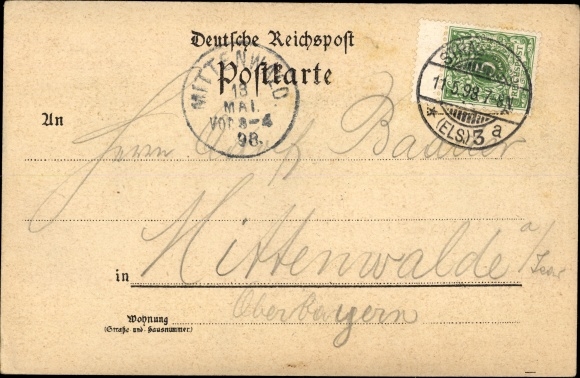 Deutsche Reichspost
Postkarte
MITTENWALD
18
MAI.
VOR 3-4
98.
17.5.98. 7-8
* (ELS) 3 a *
An
Herrn Baader
in Mittenwalde a/Isar
Oberbayern
Wohnung
(Straße und Hausnummer)